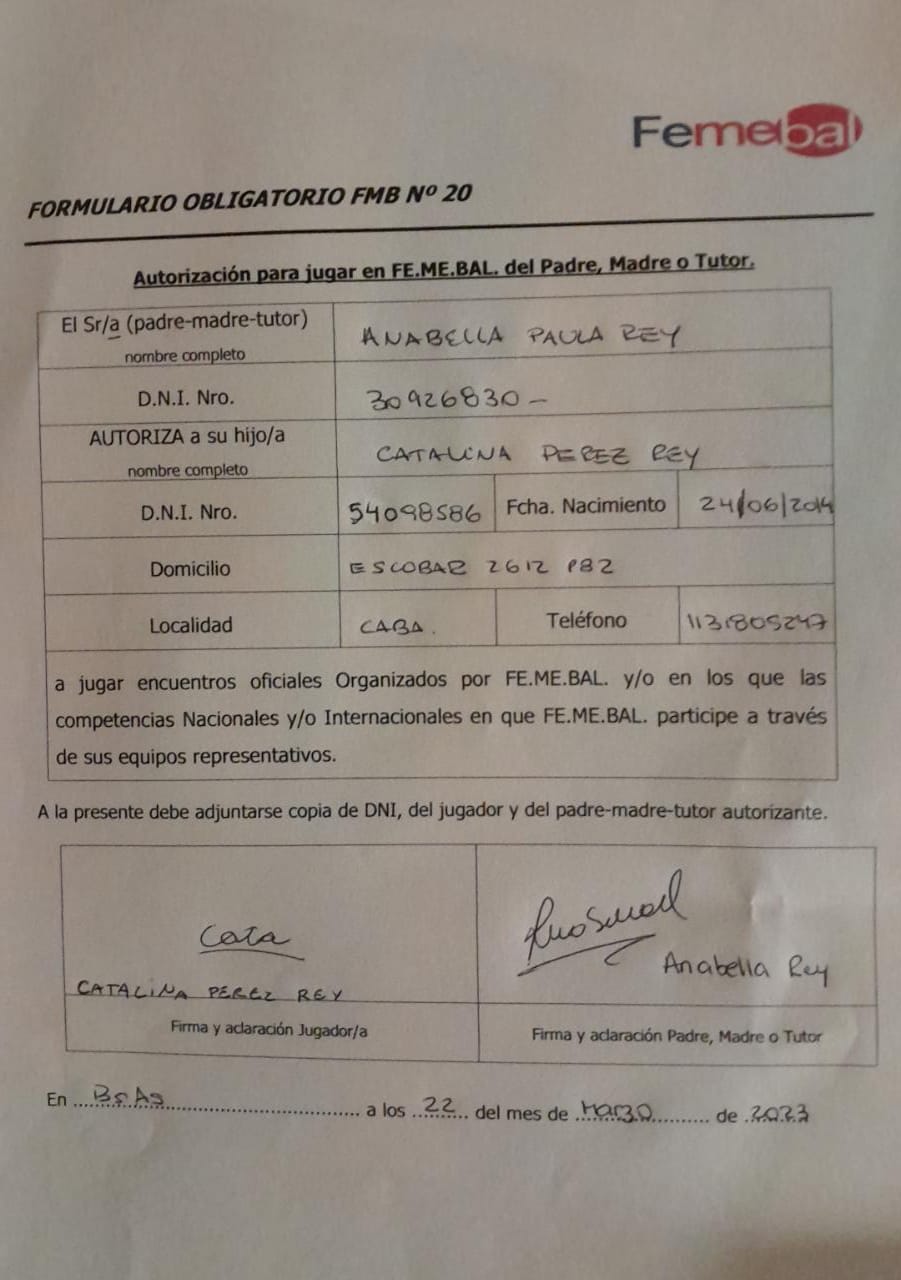 Femebal
FORMULARIO OBLIGATORIO FMB Nº 20
Autorización para jugar en FE.ME.BAL. del Padre, Madre o Tutor.
El Sr/a (padre-madre-tutor)
nombre completo
ANABELLA PAULA REY
D.N.I. Nro.
30926830 -
AUTORIZA a su hijo/a
nombre completo
CATALINA PEREZ REY
D.N.I. Nro.
54098586
Fcha. Nacimiento
24/06/2014
Domicilio
ESCOBAR 2612 PB2
Localidad
CABA.
Teléfono
1131805247
a jugar encuentros oficiales Organizados por FE.ME.BAL. y/o en los que las
competencias Nacionales y/o Internacionales en que FE.ME.BAL. participe a través
de sus equipos representativos.
A la presente debe adjuntarse copia de DNI, del jugador y del padre-madre-tutor autorizante.
Cata
CATALINA PEREZ REY
Firma y aclaración Jugador/a
Anabella Rey
Firma y aclaración Padre, Madre o Tutor
En ...BsAs................................. a los ..22.. del mes de ..Marzo.......... de .2023